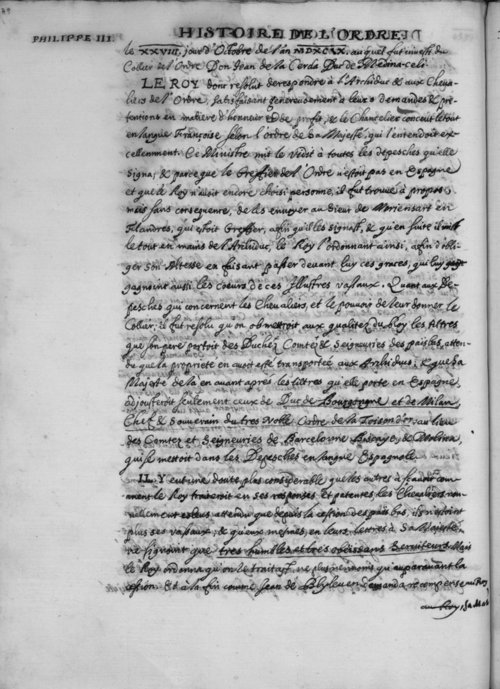 PHILIPPE III. HISTOIRE DE L'ORDRE
le XXVIII. jour d'Octobre de l'an MDXCIX. auquel fut investi du
Collier de l'Ordre Don Jean de la Cerda Duc de Medina-Celi.
LE ROY donc resolut de respondre à l'Archiduc & aux Cheva-
liers de l'Ordre, satisfaisant genereusement a leurs demandes & pre-
tentions en matiere d'honneur et de profit, & le Chancelier conceut le tout
en langue Françoise selon l'ordre de Sa Majesté, qui l'entendoit ex-
cellemment. Ce Ministre mit le Vidit à toutes les depesches qu'elle
signa; & parce que le Greffier de l'Ordre n'estoit pas en Espagne
et que le Roy n'avoit encore choisi personne, il fut trouvé à propos
mais sans consequence, de les envoyer au Sieur de Moriensart en
Flandres, qui estoit Greffier, afin qu'il les signast, & qu'en suite il mist
le tout en mains de l'Archiduc, le Roy l'ordonnant ainsi, afin d'obli-
ger Son Altesse en faisant passer devant luy ces graces, qui luy
gagnoient aussi les coeurs de ces Illustres vasaux. Quant aux De-
pesches qui concernent les Chevaliers, et le pouvoir de leur donner le
Collier; il fut resolu qu'on obmettroit aux qualitez du Roy les tiltres
que son pere portoit des Duchez Comtez & Seigneuries des païs bas, atten-
du que la proprieté en avoit esté transportée aux Archiducs; & que Sa
Majesté de là en avant apres les tiltres qu'elle porte en Espagne,
adjousteroit seulement ceux de Duc de Bourgogne et de Milan,
Chef & Souverain du tres Noble Ordre de la Toison d'or, au lieu
des Comtez et Seigneuries de Barcelonne Biscaye, & Molina,
qui se mettoit dans les Depesches en langue Espagnole.
IL Y eut une doute plus considerable que les autres à sçavoir com-
ment le Roy traiteroit en ses responses et patentes, les Chevaliers nou-
vellement esleus, attendu que depuis la cession des païs bas, ils n'estoient
plus ses vassaux, & qu'eux mesmes, en leurs lettres à Sa Majesté
ne signoient que tres humbles et tres obeissans Serviteurs. Mais
le Roy ordonna qu'on le traitast, ne plus ne moins qu'auparavant la
cession. Et à la fin comme Jean de demanda recompense au Roy